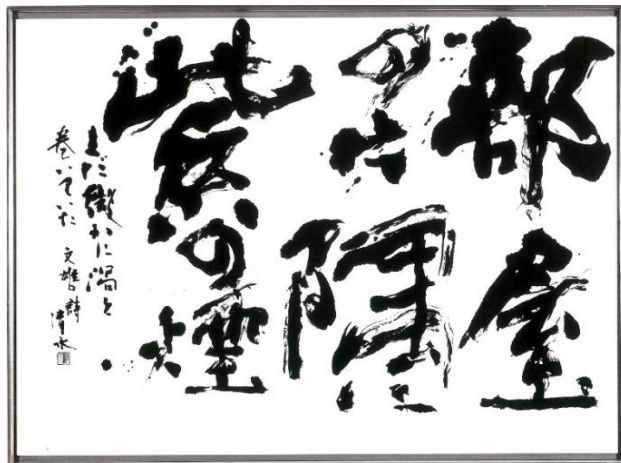 部屋
の片隅に
紫の煙
まだ微かに渦を
巻いていた 文雄詩